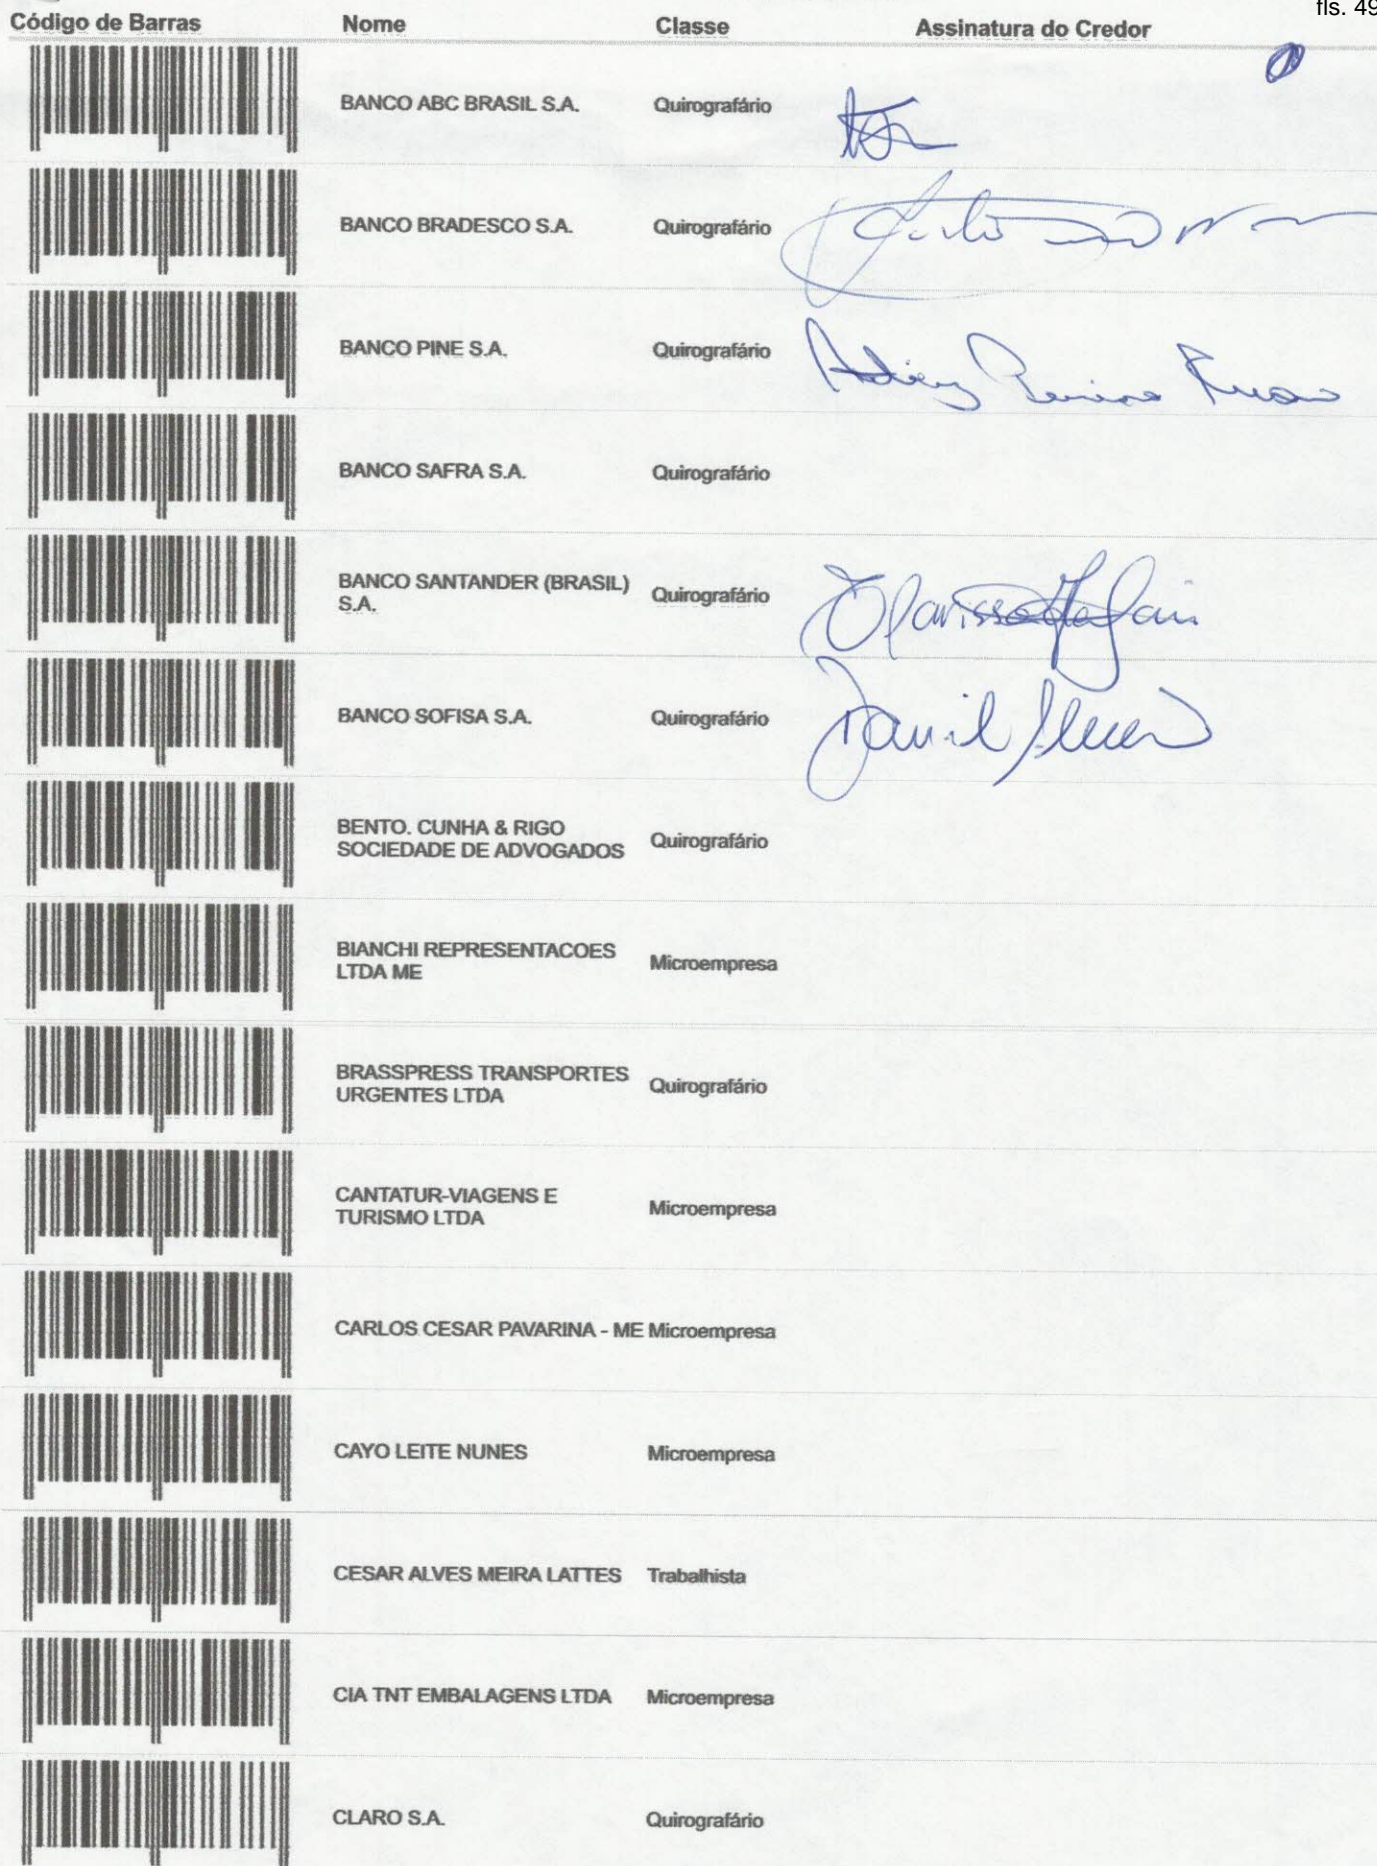 fls. 49
Código de Barras Nome Classe Assinatura do Credor
BANCO ABC BRASIL S.A. Quirografário
BANCO BRADESCO S.A. Quirografário
BANCO PINE S.A. Quirografário
BANCO SAFRA S.A. Quirografário
BANCO SANTANDER (BRASIL)
S.A. Quirografário
BANCO SOFISA S.A. Quirografário
BENTO. CUNHA & RIGO
SOCIEDADE DE ADVOGADOS Quirografário
BIANCHI REPRESENTACOES
LTDA ME Microempresa
BRASSPRESS TRANSPORTES
URGENTES LTDA Quirografário
CANTATUR-VIAGENS E
TURISMO LTDA Microempresa
CARLOS CESAR PAVARINA - ME Microempresa
CAYO LEITE NUNES Microempresa
CESAR ALVES MEIRA LATTES Trabalhista
CIA TNT EMBALAGENS LTDA Microempresa
CLARO S.A. Quirografário